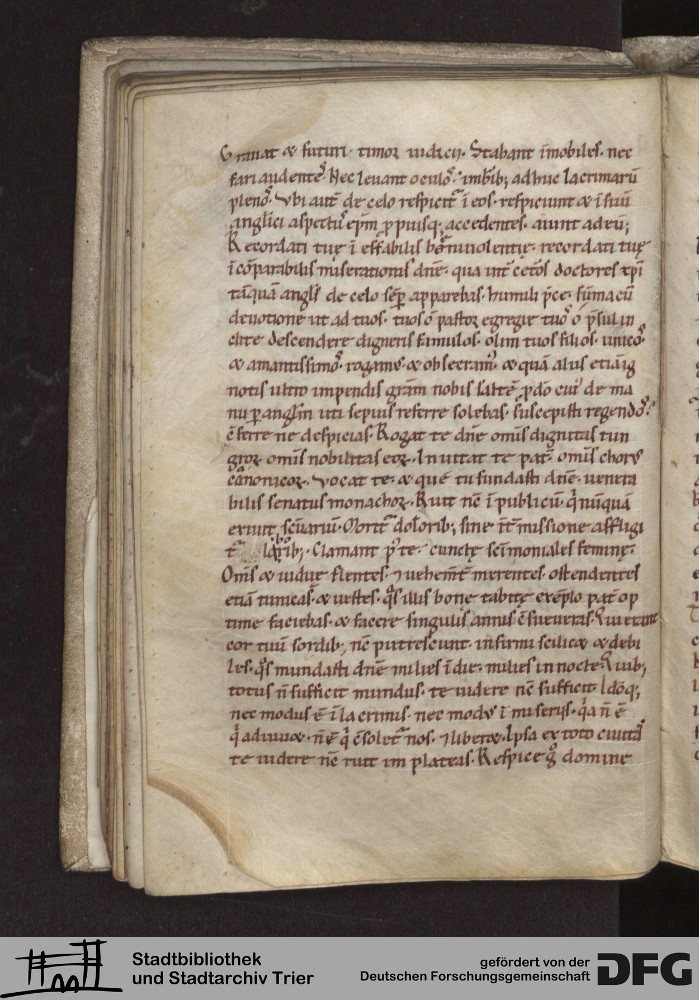 Gravat & futuri · timor iudicij · Stabant īmobiles · nec
fari audentes · Nec leuant oculos · imbrib; adhuc lacrimarū
plenos · Vbi autē de celo respicit̄ i eos · respiciunt & i suū
anglici aspectus ep̄m · p̱puisq; accedentes · aiunt ad eū;
Recordati tuę i effabilis beniuolentię · recordati tuę
i cōparabilis miserationis dn̄e · qua int̄ cetos doctores xp̄i
tāquā angls̄ de celo sēp̱ apparebas · humili p̄ce · sūma cū
deuotione ut ad tuos · tuos ō pastor egregie tuos ō p̄sul in
clite descendere digneris famulos · olim tuos filios · unicos
& amantissimos · rogamus & obsecram⁹ · & quā aliis etiā ig
notis ultro impendis grām nobis
nu p̱ angl̄m uti sepius referre solebas · suscepisti regendos
c̄ferre ne despicias · Rogat te dn̄e omīs dignitas tun
groꝝ omīs nobilitas eoꝝ · Inuitat te pat̄ · omīs chorus
canonicoꝝ · Vocat te · & quē tu fundasti dn̄e · uenera
bilis senatus monachoꝝ · Ruit nc̄ i publicū · q̄ nūquā
exiuit
laborib; · Clamant p̱ te · cunctę sc̄imoniales feminę ·
Om̄s & uiduę flentes · 7 uehem̄t merentes · ostendentes
etiā tunicas · & uestes · qͣs illis bone tabitę exēplo pat̄ op
time faciebas · & facere singulis annis c̄sueueras ·
cor tuū sordib; nc̄ putrescunt · infirmi scilic& & debi
les · qͦs mundasti dn̄e milies i die · milies in nocte Quib;
totus n̄ sufficit mundus · te uidere nc̄ sufficit
nec modus ē i lacrimis · nec modus i miseriis · q̄a n̄ ē
q̄ adiuu& · n̄ ē q̄ c̄solet̄ nos · 7 liber& · Ipsa ex toto ciuitas
te uidere nc̄ ruit im plateas · Respice gͦ domine
Stadtbibliothek
und Stadtarchiv Trier
gefördert von der
Deutschen Forschungsgemeinschaft
DFG